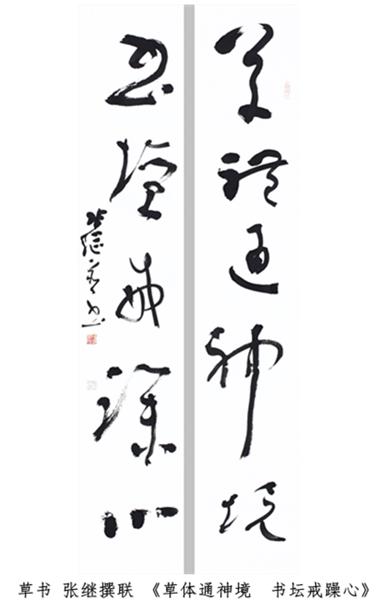 草體通神境
書壇戒躁心
張繼
草书 张继撰联 《草体通神境 书坛戒躁心》